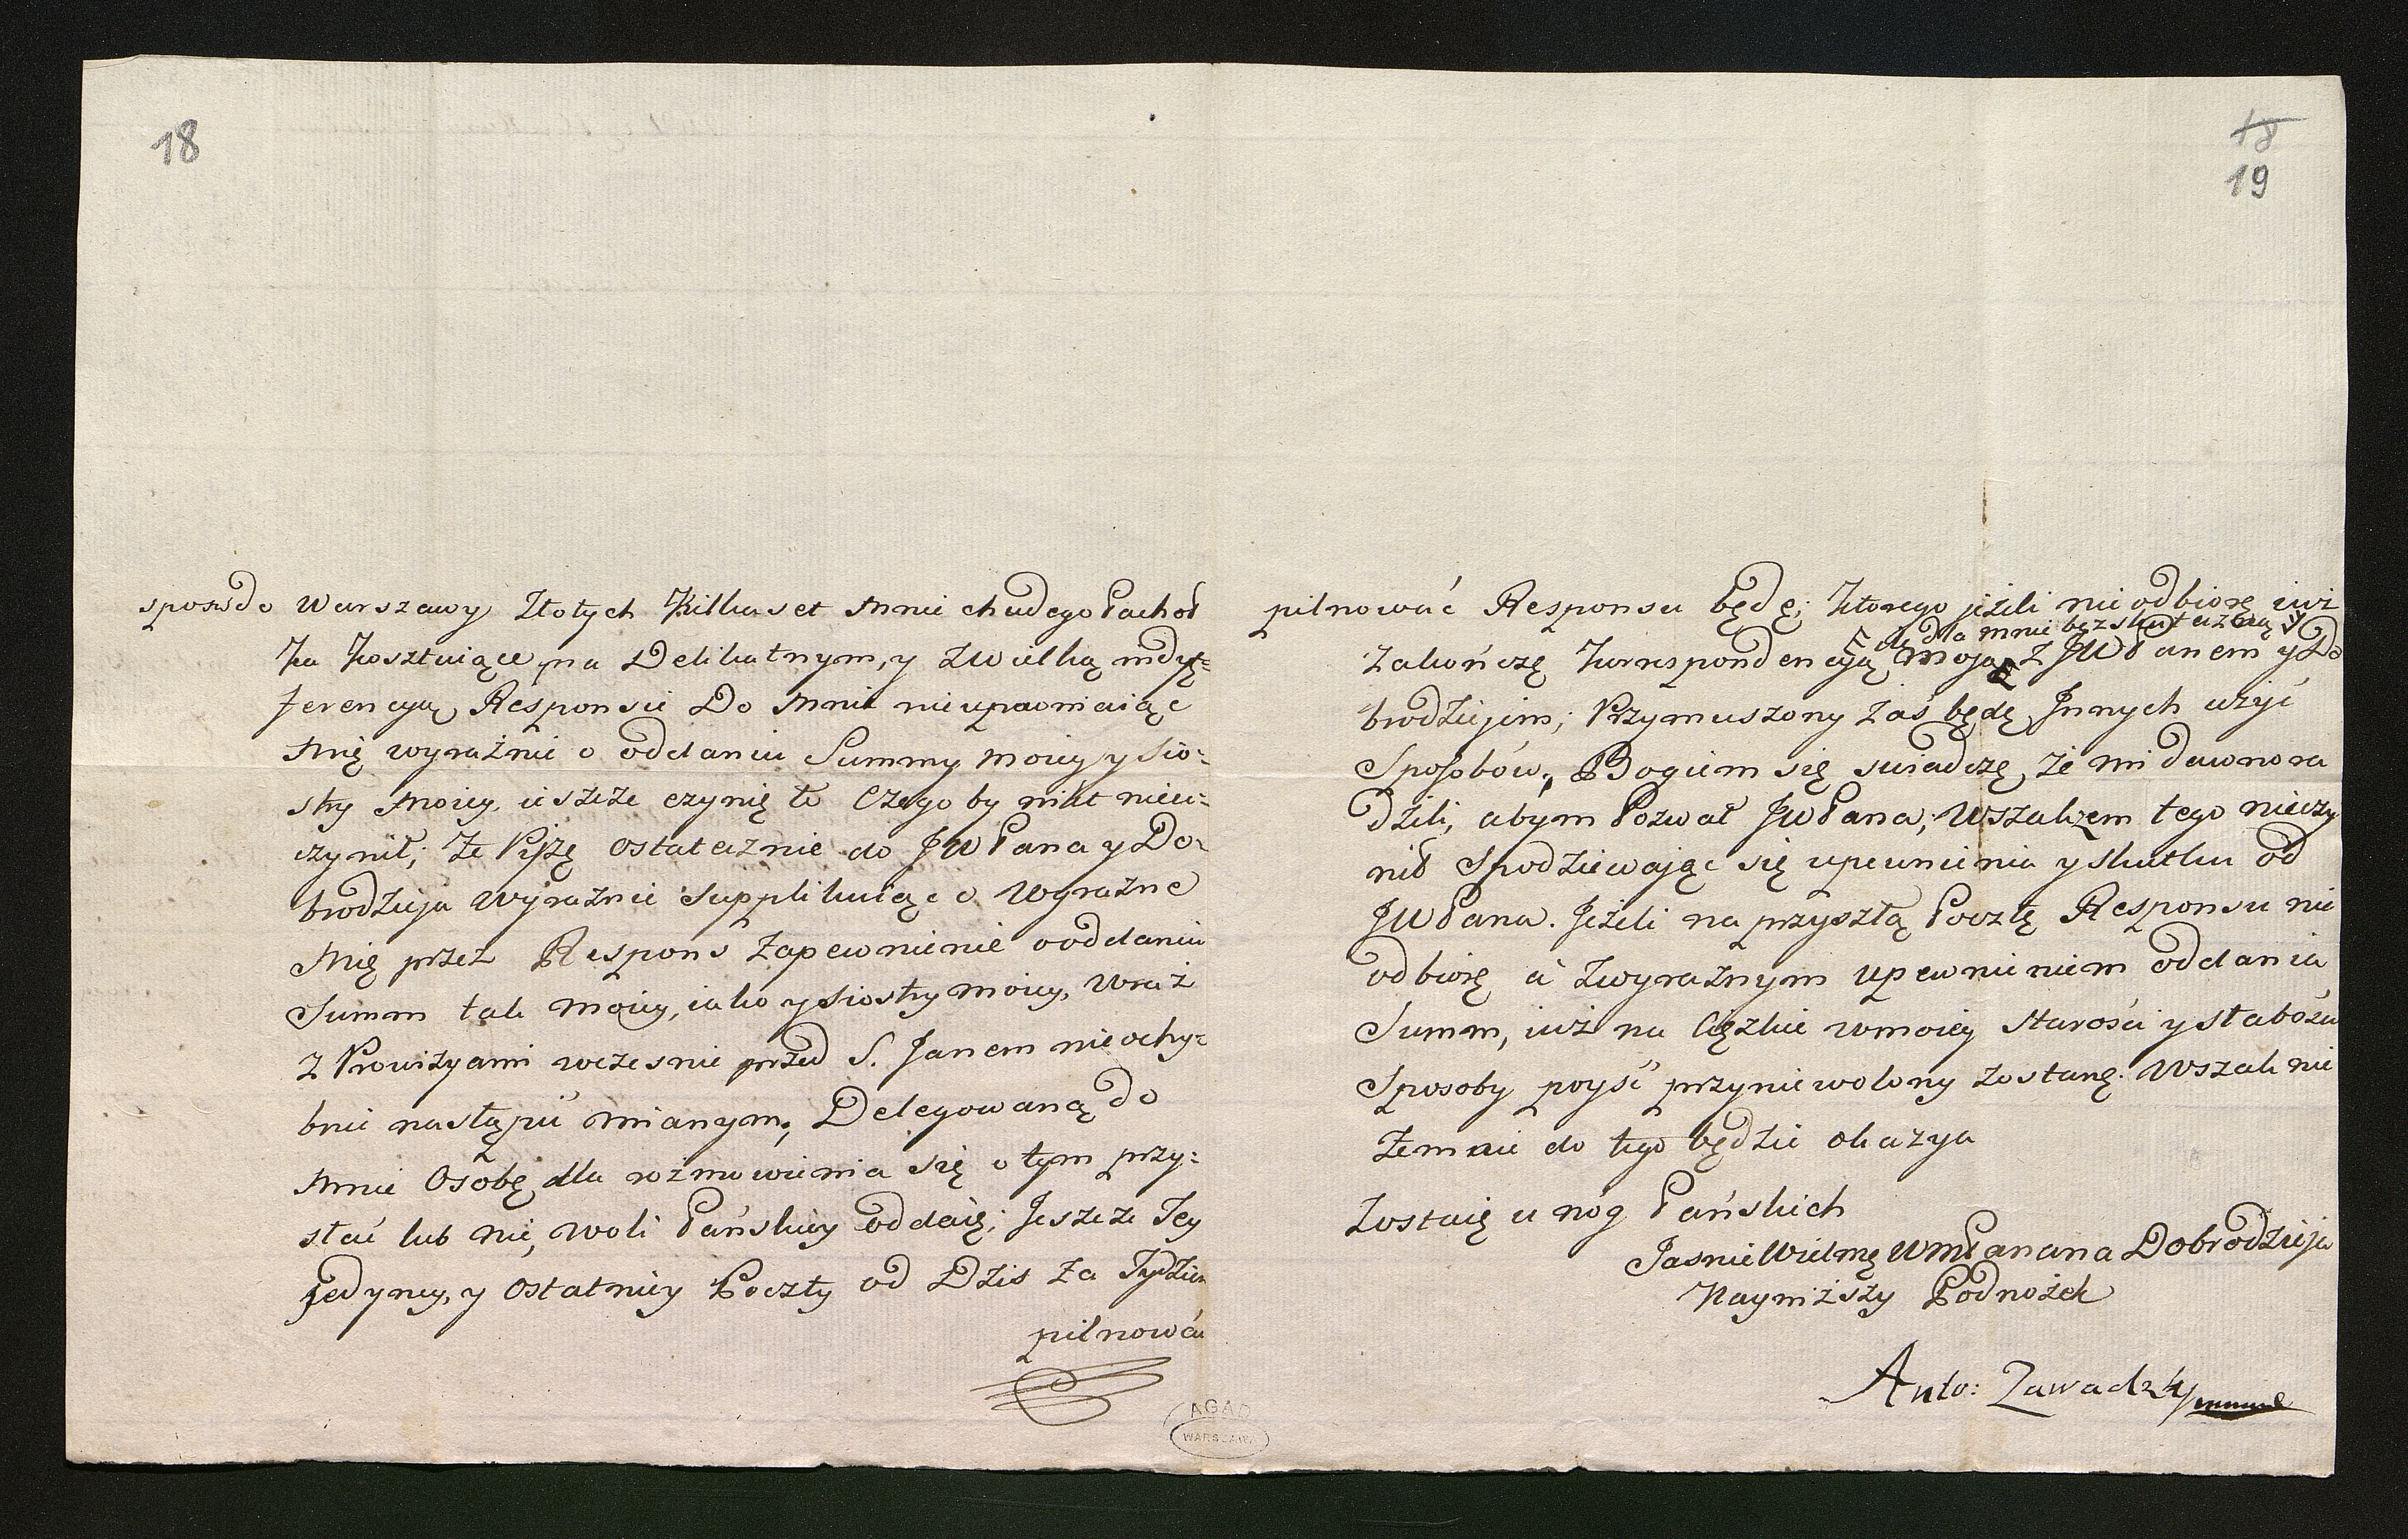 18
do Warszawy Złotych Kilkaset Mnie chudego Pachoł
ka kosztuiące, na Delikatnym, y z wielką indyf=
ferencyą Responsie Do Mnie nieupewniaiąc
Mię wyraźnie o oddaniu Summy moiey y sio=
stry Moiey, ieszcze czynię to Czego by nikt nieu=
czynił; że Piszę ostatecznie do JWPana y Do=
brodzieja Wyraźnie Supplikuiąc o Wyraźne
Mię przez Respons zapewnienie o oddaniu
Summ tak moiey, iako y siostry moiey, wraz
z Prowizyami wcześnie przed S. Janem nieochy=
bnie nastąpić mianym; Delegowaną do
Mnie Osobę dla rozmowienia się o tym przy=
słać lub nie, woli Pańskiey oddaię; Jeszcze Tey
jedyney, y Ostatniey Poczty od Dziś za Tydzień
pilnować
AGAD
WARSZAWA
18
19
pilnować Responsu będę; Ktorego jeżeli nieodbiorę iuż
dla mnie bezskuteczną
zakończę Korrespondencyą moją z JWPanem y Do
brodziejem; Przymuszony zaś będę Innych użyć
Sposobów; Bogiem się swiadczę, że mi dawno ra
dzili, abym Pozwał JWPana; Wszakżem tego nieczy
nił Spodziewając się upewnienia y skutku od
JWPana. Jeżeli na przyszłą Pocztę Responsu nie
odbiorę à z wyraźnym upewnieniem oddania
Summ, iuż na Ciężkie w moiey Starości y słabości
Sposoby poyść przyniewolony zostanę. Wszak nie
zemnie do tego będzie okazya
Zostaię u nog Pańskich
Jasnie Wielmę WmPanana Dobrodzieja
Nayniższy Podnożek
Anto: Zawadzky